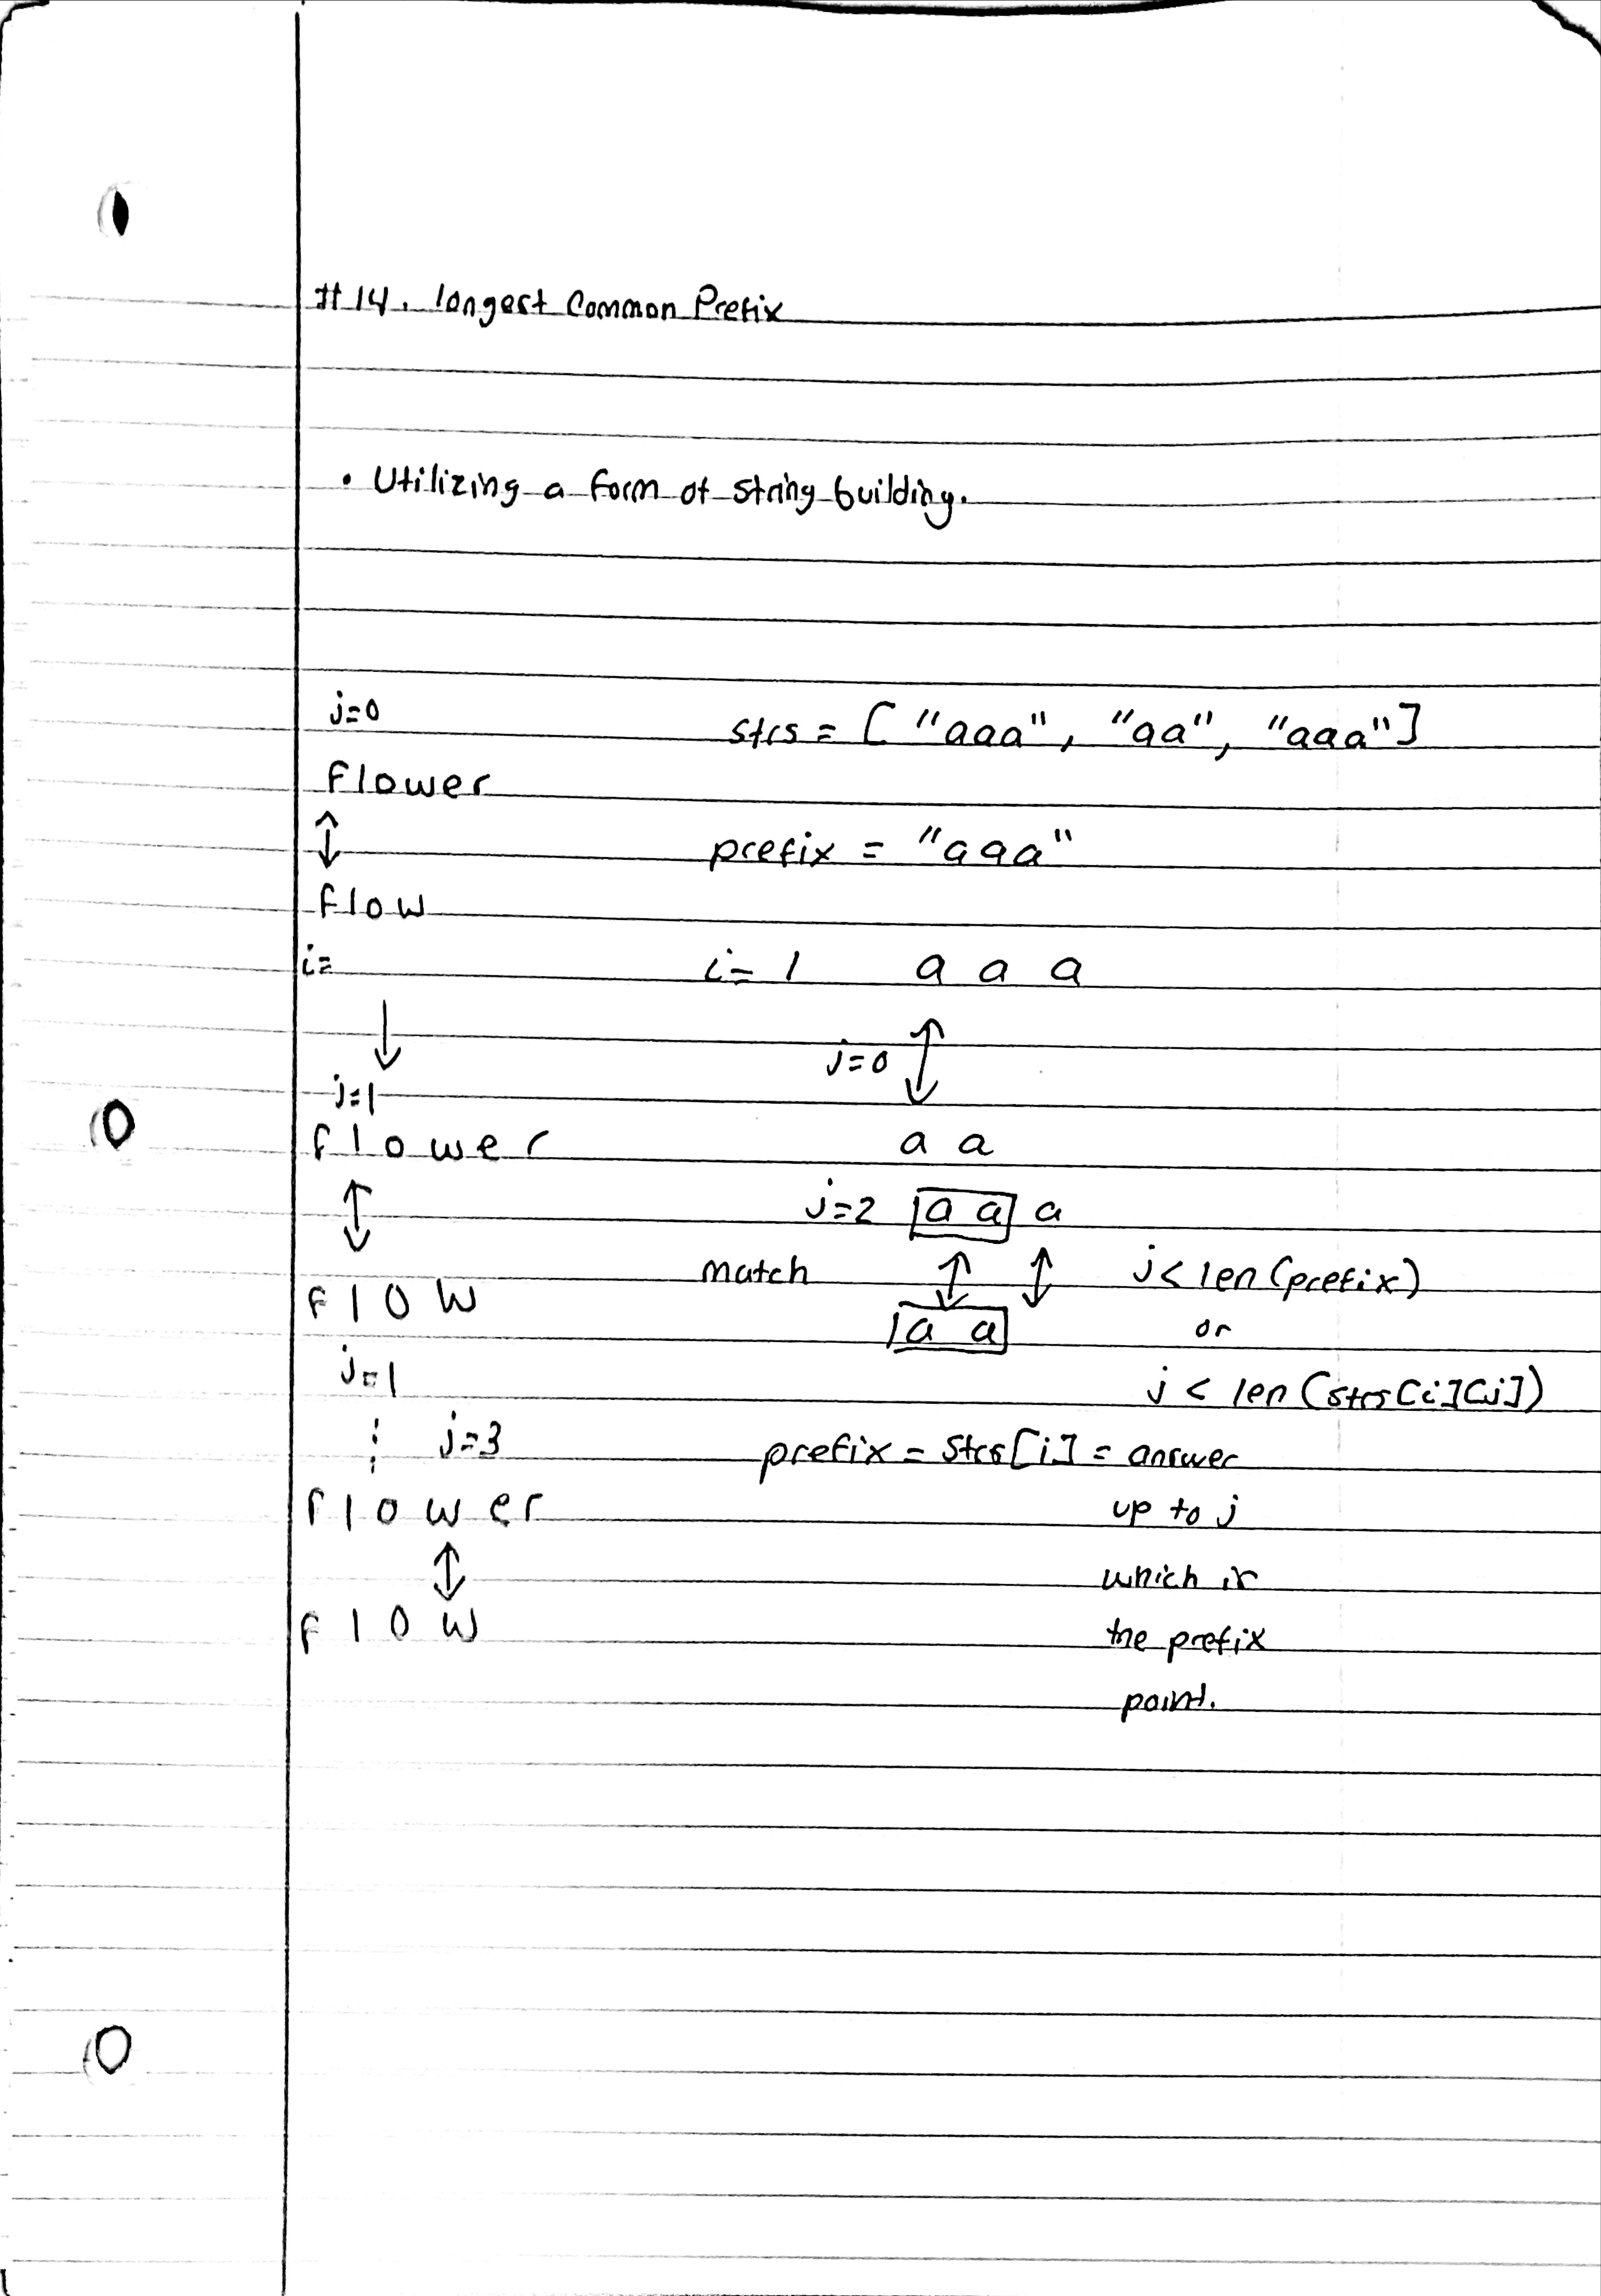 #14. longest Common Prefix
• Utilizing a form of string building.
j=0
flower
flow
i=
j=1
flower
flow
j=1
j=3
flower
flow
strs = ["aaa", "aa", "aaa"]
prefix = "aaa"
i=1 a a a
j=0
a a
j=2 a a a
match j<len(prefix)
a a or
j < len(strs[i][j])
prefix = strs[i] = answer
up to j
which is
the prefix
point.